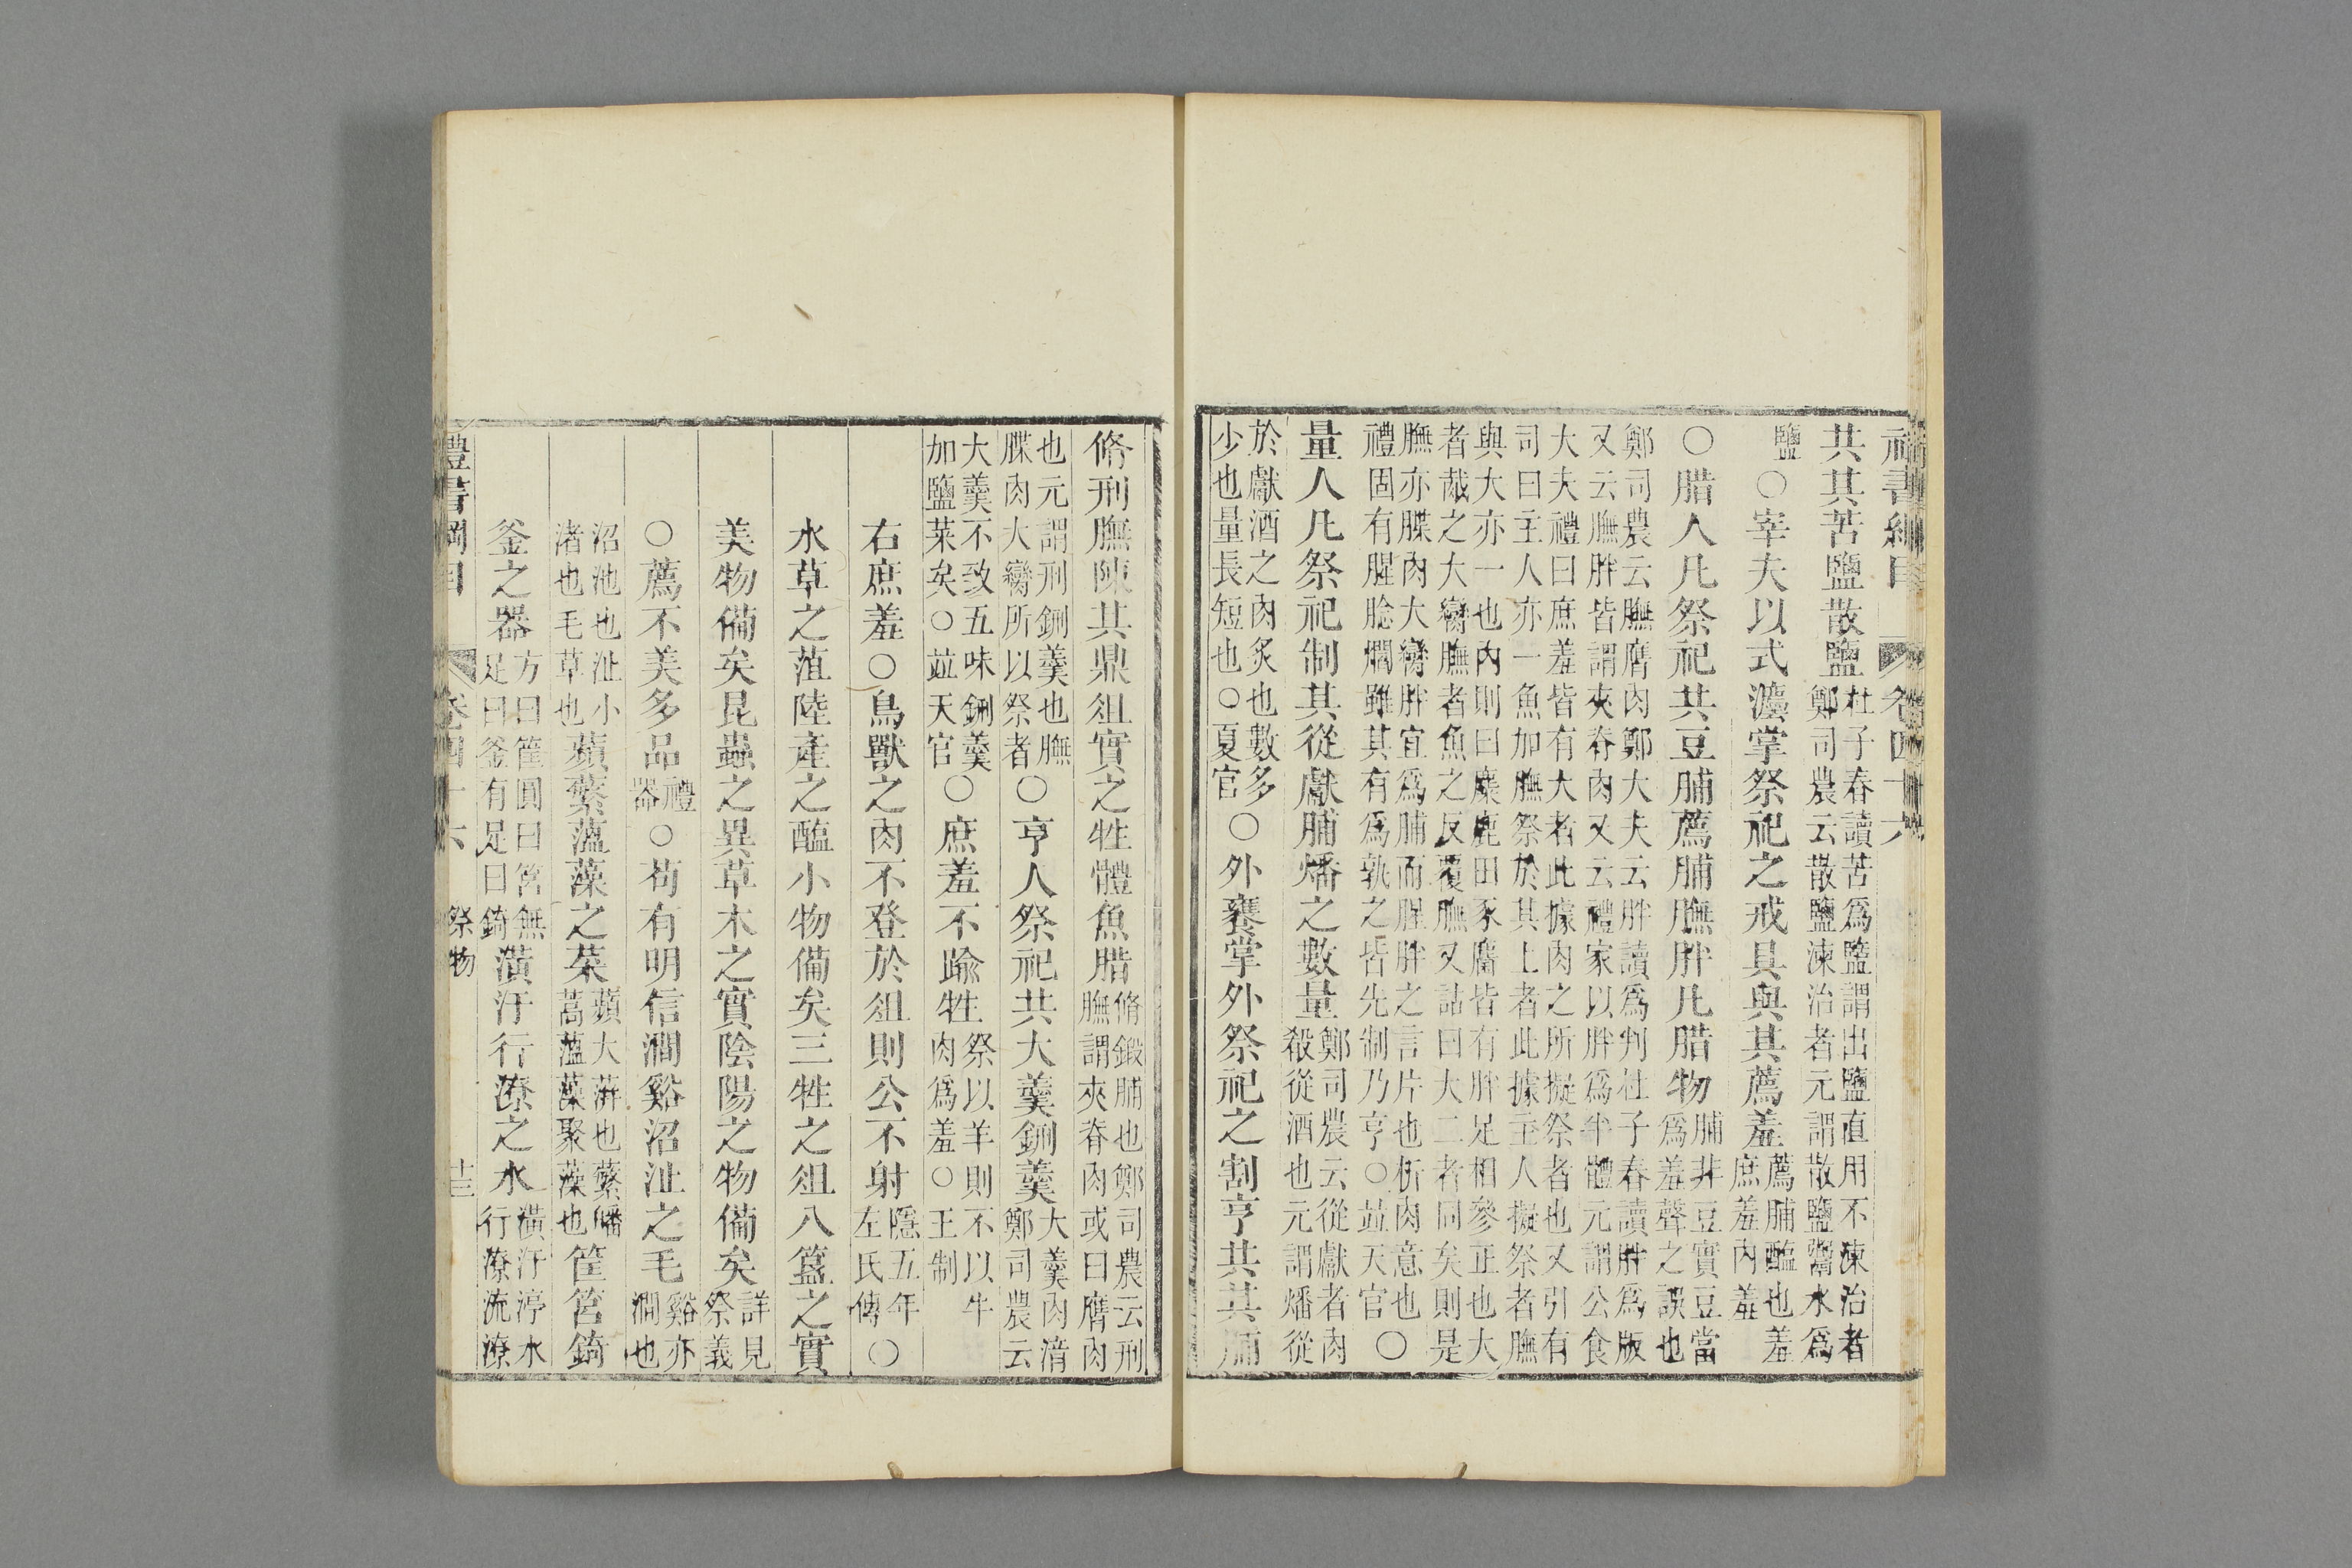 禮書綱目 卷四十六
共其苦鹽散鹽杜子春讀苦爲盬謂出鹽直用不湅治者
鄭司農云散鹽湅治者元謂散鹽鬻水爲
鹽○宰夫以式灋掌祭祀之戒具與其薦羞薦脯醢也羞
庶羞內羞
○腊人凡祭祀共豆脯薦脯膴胖凡腊物脯非豆實豆當
爲羞聲之誤也
鄭司農云膴膺肉鄭大夫云胖讀爲判杜子春讀胖爲版
又云膴胖皆謂夾脊肉又云禮家以胖爲半體元謂公食
大夫禮曰庶羞皆有大者此據肉之所擬祭者也又引有
司曰主人亦一魚加膴祭於其上者此據主人擬祭者膴
與大亦一也內則曰麋鹿田豕麕皆有胖足相參正也大
者胾之大臠膴者魚之反覆膴又詁曰大二者同矣則是
膴亦牒肉大臠胖宜爲脯而腥胖之言片也析肉意也
禮固有腥腍爓雖其有爲孰之皆先制乃亨○竝天官○
量人凡祭祀制其從獻脯燔之數量鄭司農云從獻者肉
殽從酒也元謂燔從
於獻酒之肉炙也數多
少也量長短也○夏官○外饔掌外祭祀之割亨共其脯
脩刑膴陳其鼎俎實之牲體魚腊脩鍛脯也鄭司農云刑
膴謂夾脊肉或曰膺肉
也元謂刑鉶羹也膴
牒肉大臠所以祭者○亨人祭祀共大羹鉶羹大羹肉湆
鄭司農云
大羹不致五味鉶羹
加鹽菜矣○竝天官○庶羞不踰牲祭以羊則不以牛
肉爲羞○王制
右庶羞○鳥獸之肉不登於俎則公不射隱五年
左氏傳○
水草之菹陸產之醢小物備矣三牲之俎八簋之實
美物備矣昆蟲之異草木之實陰陽之物備矣詳見
祭義
○薦不美多品禮
器○苟有明信澗谿沼沚之毛谿亦
澗也
沼池也沚小
渚也毛草也蘋蘩薀藻之菜蘋大蓱也蘩皤
蒿薀藻聚藻也筐筥錡
釜之器方曰筐圓曰筥無
足曰釜有足曰錡潢汙行潦之水潢汙渟水
行潦流潦
禮書綱目 卷四十六 祭物 十三